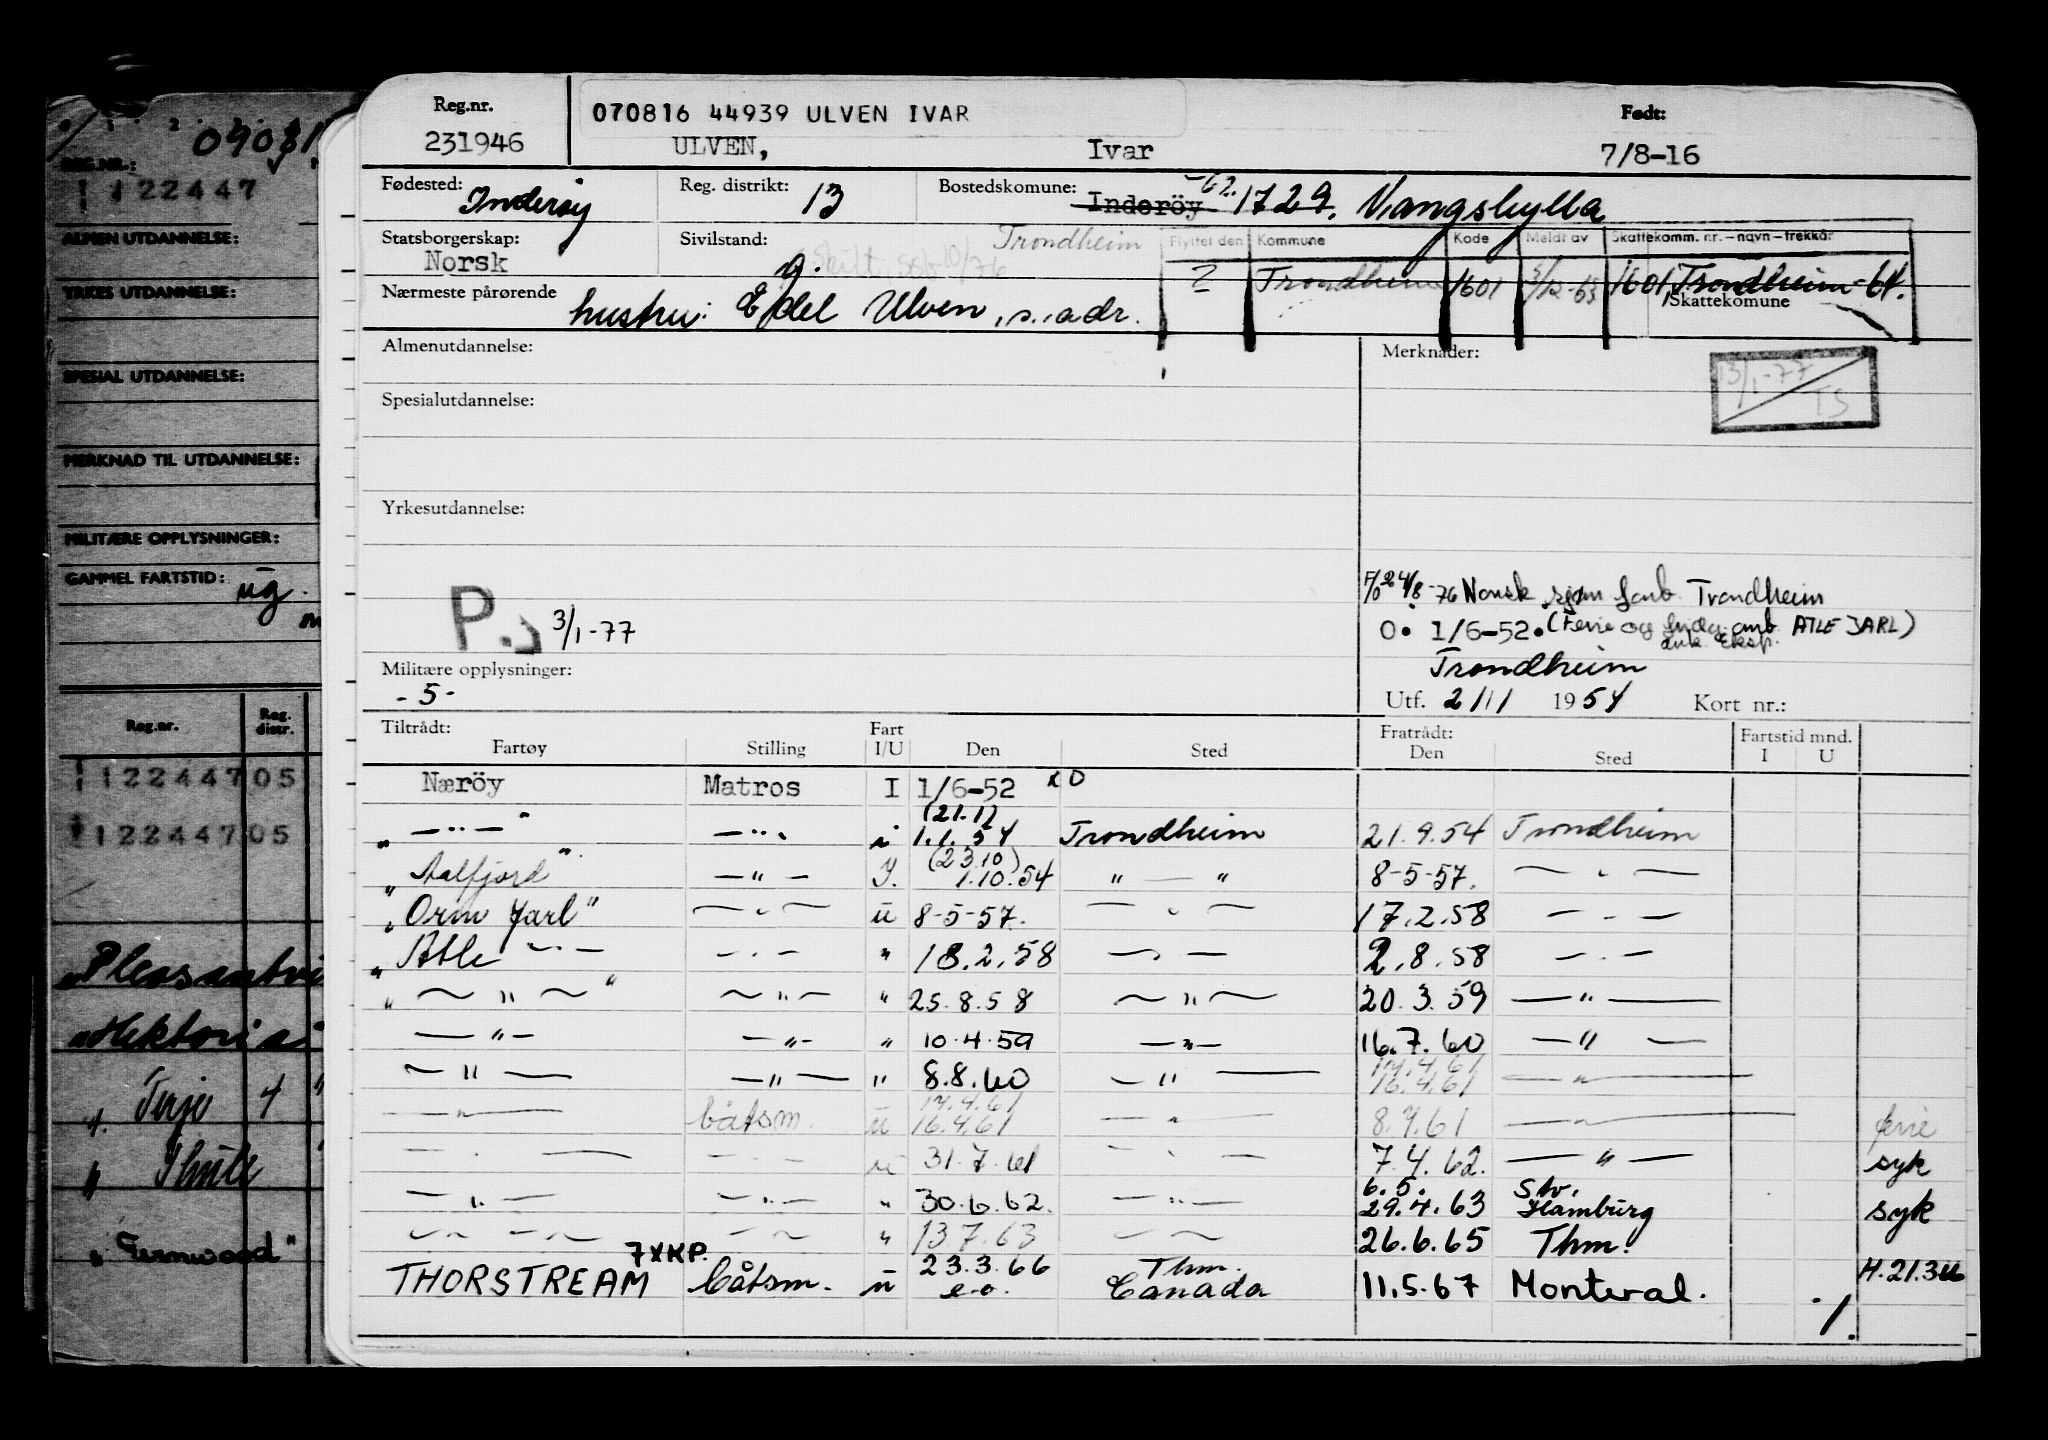 REG.NR.:
122447
ALMEN UTDANNELSE:
YRKES UTDANNELSE:
SPESIAL UTDANNELSE:
MERKNAD TIL UTDANNELSE:
MILITÆRE OPPLYSNINGER:
GAMMEL FARTSTID: ug.
Reg.nr. Reg. distr.
122447 05
122447 05
"Pleasantvi
"Hektoria
" Terje 4 "
" Thule "
" Fernwood"
Reg.nr. 070816 44939 ULVEN IVAR Født:
231946 ULVEN, Ivar 7/8-16
Fødested: Inderøy Reg. distrikt: 13 Bostedskomune: Inderöy -62. 1729, Vangshylla
Statsborgerskap: Norsk Sivilstand: g. Skilt. 10/76 Trondheim
Flyttet den Kommune Kode Meldt av Skattekomm. nr.-navn-trekkår
? Trondheim 1601 1601, Trondheim-64.
Skattekomune
Nærmeste pårørende hustru: Edel Ulven, s. adr.
Almenutdannelse: Merknader:
13/1-77 TS
Spesialutdannelse:
Yrkesutdannelse:
24/8-76 Norsk sjøm forb Trondheim
P. 3/1-77
O. 1/6-52. (Ferie og ATLE JARL)
Trondheim
Militære opplysninger:
-5-
Utf. 2/11 1954 Kort nr.:
Tiltrådt: Fart Fratrådt: Fartstid mnd.
Fartøy Stilling I/U Den Sted Den Sted I U
Næröy Matros I 1/6-52 xO
" —"— " —"— i (21.1) 1.1.54 Trondheim 21.9.54 Trondheim
" Aalfjord" —"— I. (23.10) 1.10.54 "—" 8-5-57. —"—
"Orm Jarl" —"— u 8-5-57. —"— 17.2.58 —"—
" Atle —"— —"— " 18.2.58 —"— 2.8.58 —"—
" —"— " —"— " 25.8.58 —"— 20.3.59 —"—
—"— —"— " 10.4.59 —"— 16.7.60 —"—
—"— —"— " 8.8.60 —"— 14.4.61 16.4.61 —"—
—"— båtsm. u 14.4.61 16.4.61 —"— 8.7.61 —"— ferie
—"— —"— u 31.7.61 —"— 7.4.62. —"— syk
—"— —"— " 30.6.62. —"— 6.5. 29.4.63 Stv. Hamburg syk
—"— —"— " 13.7.63 —"— 26.6.65 Thm.
THORSTREAM 7XKP. båtsm. u 23.3.66 e.o. Thm. Canada 11.5.67 Monteral. H.21.366